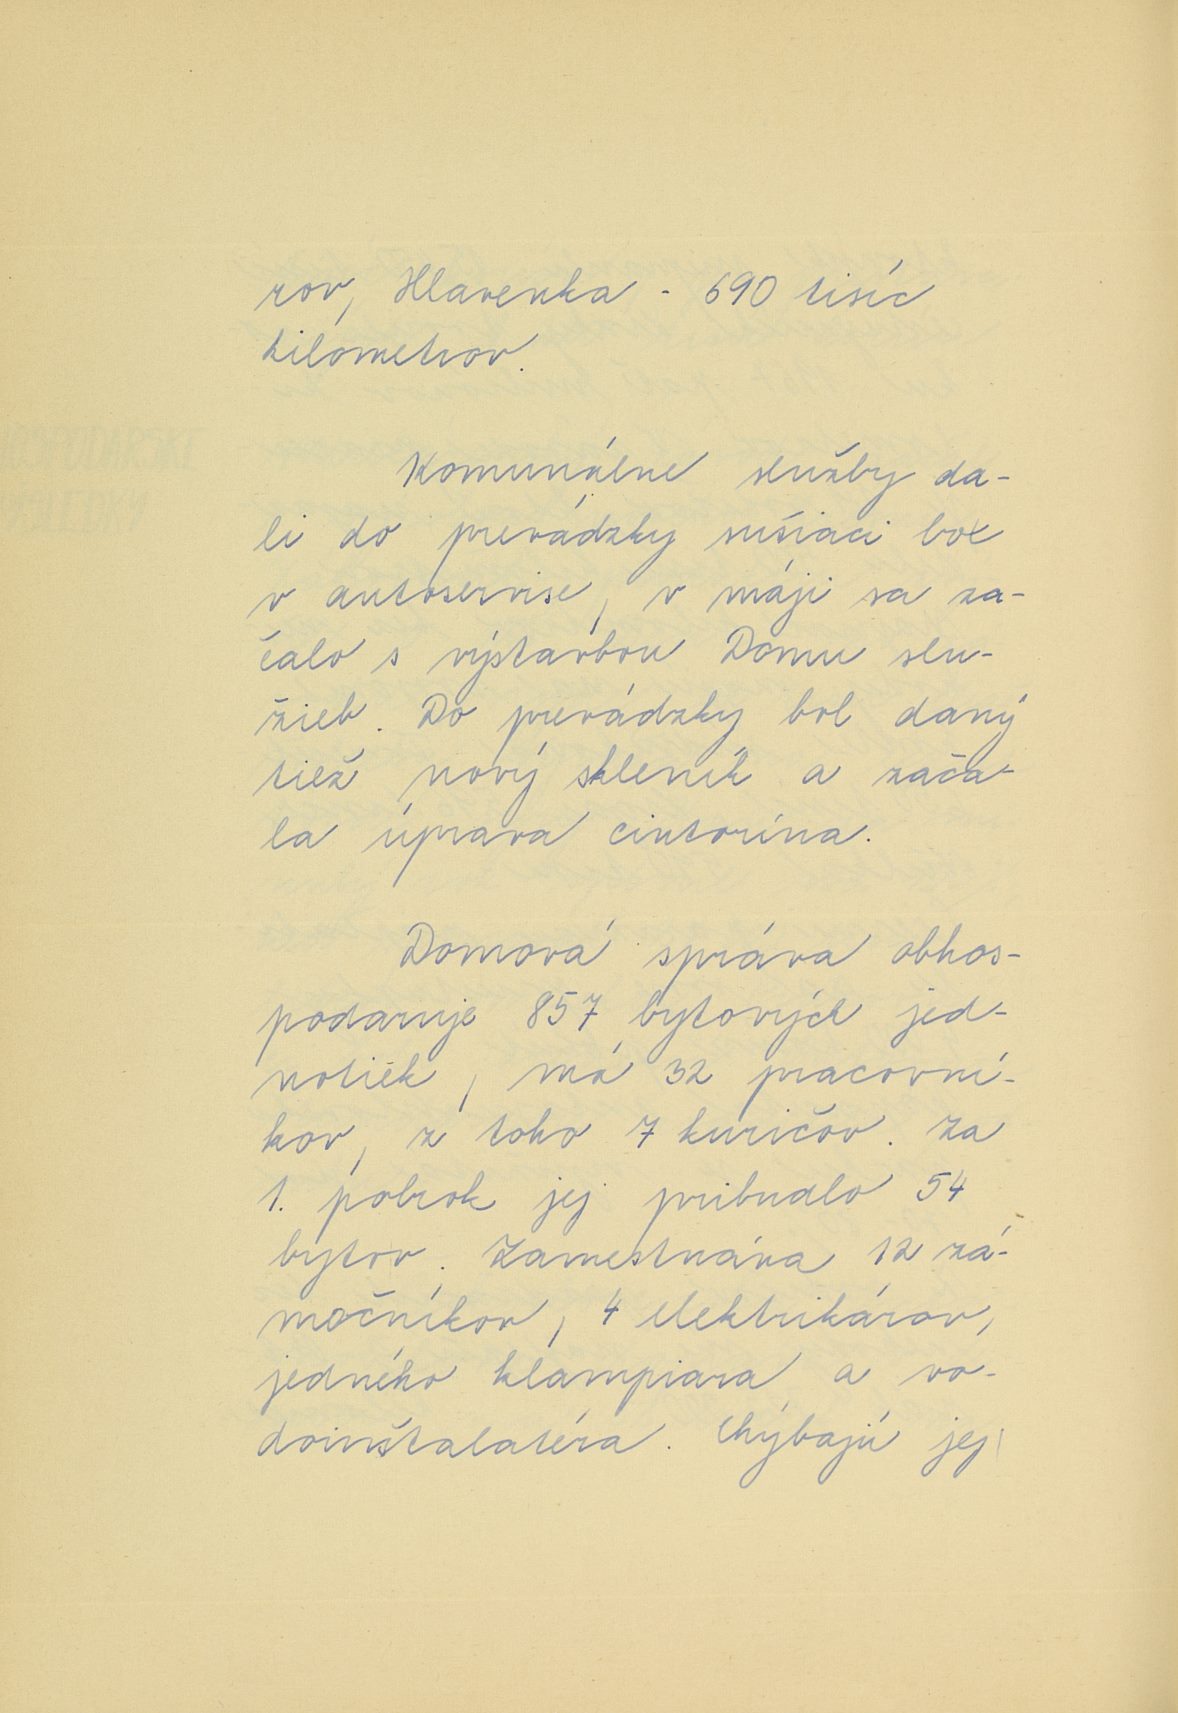 rov, Hlavenka - 690 tisíc
kilometrov.
Komunálne služby da-
li do prevádzky sušiaci box
v autoservise, v máji sa za-
čalo s výstavbou Domu slu-
žieb. Do prevádzky bol daný
tiež nový skleník a zača-
la úprava cintorína.
Domová správa obhos-
podaruje 857 bytových jed-
notiek, má 32 pracovní-
kov, z toho 7 kuričov. Za
1. polrok jej pribudlo 54
bytov. Zamestnáva 12 zá-
močníkov, 4 elektrikárov,
jedného klampiara a vo-
doinštalatéra. Chýbajú jej